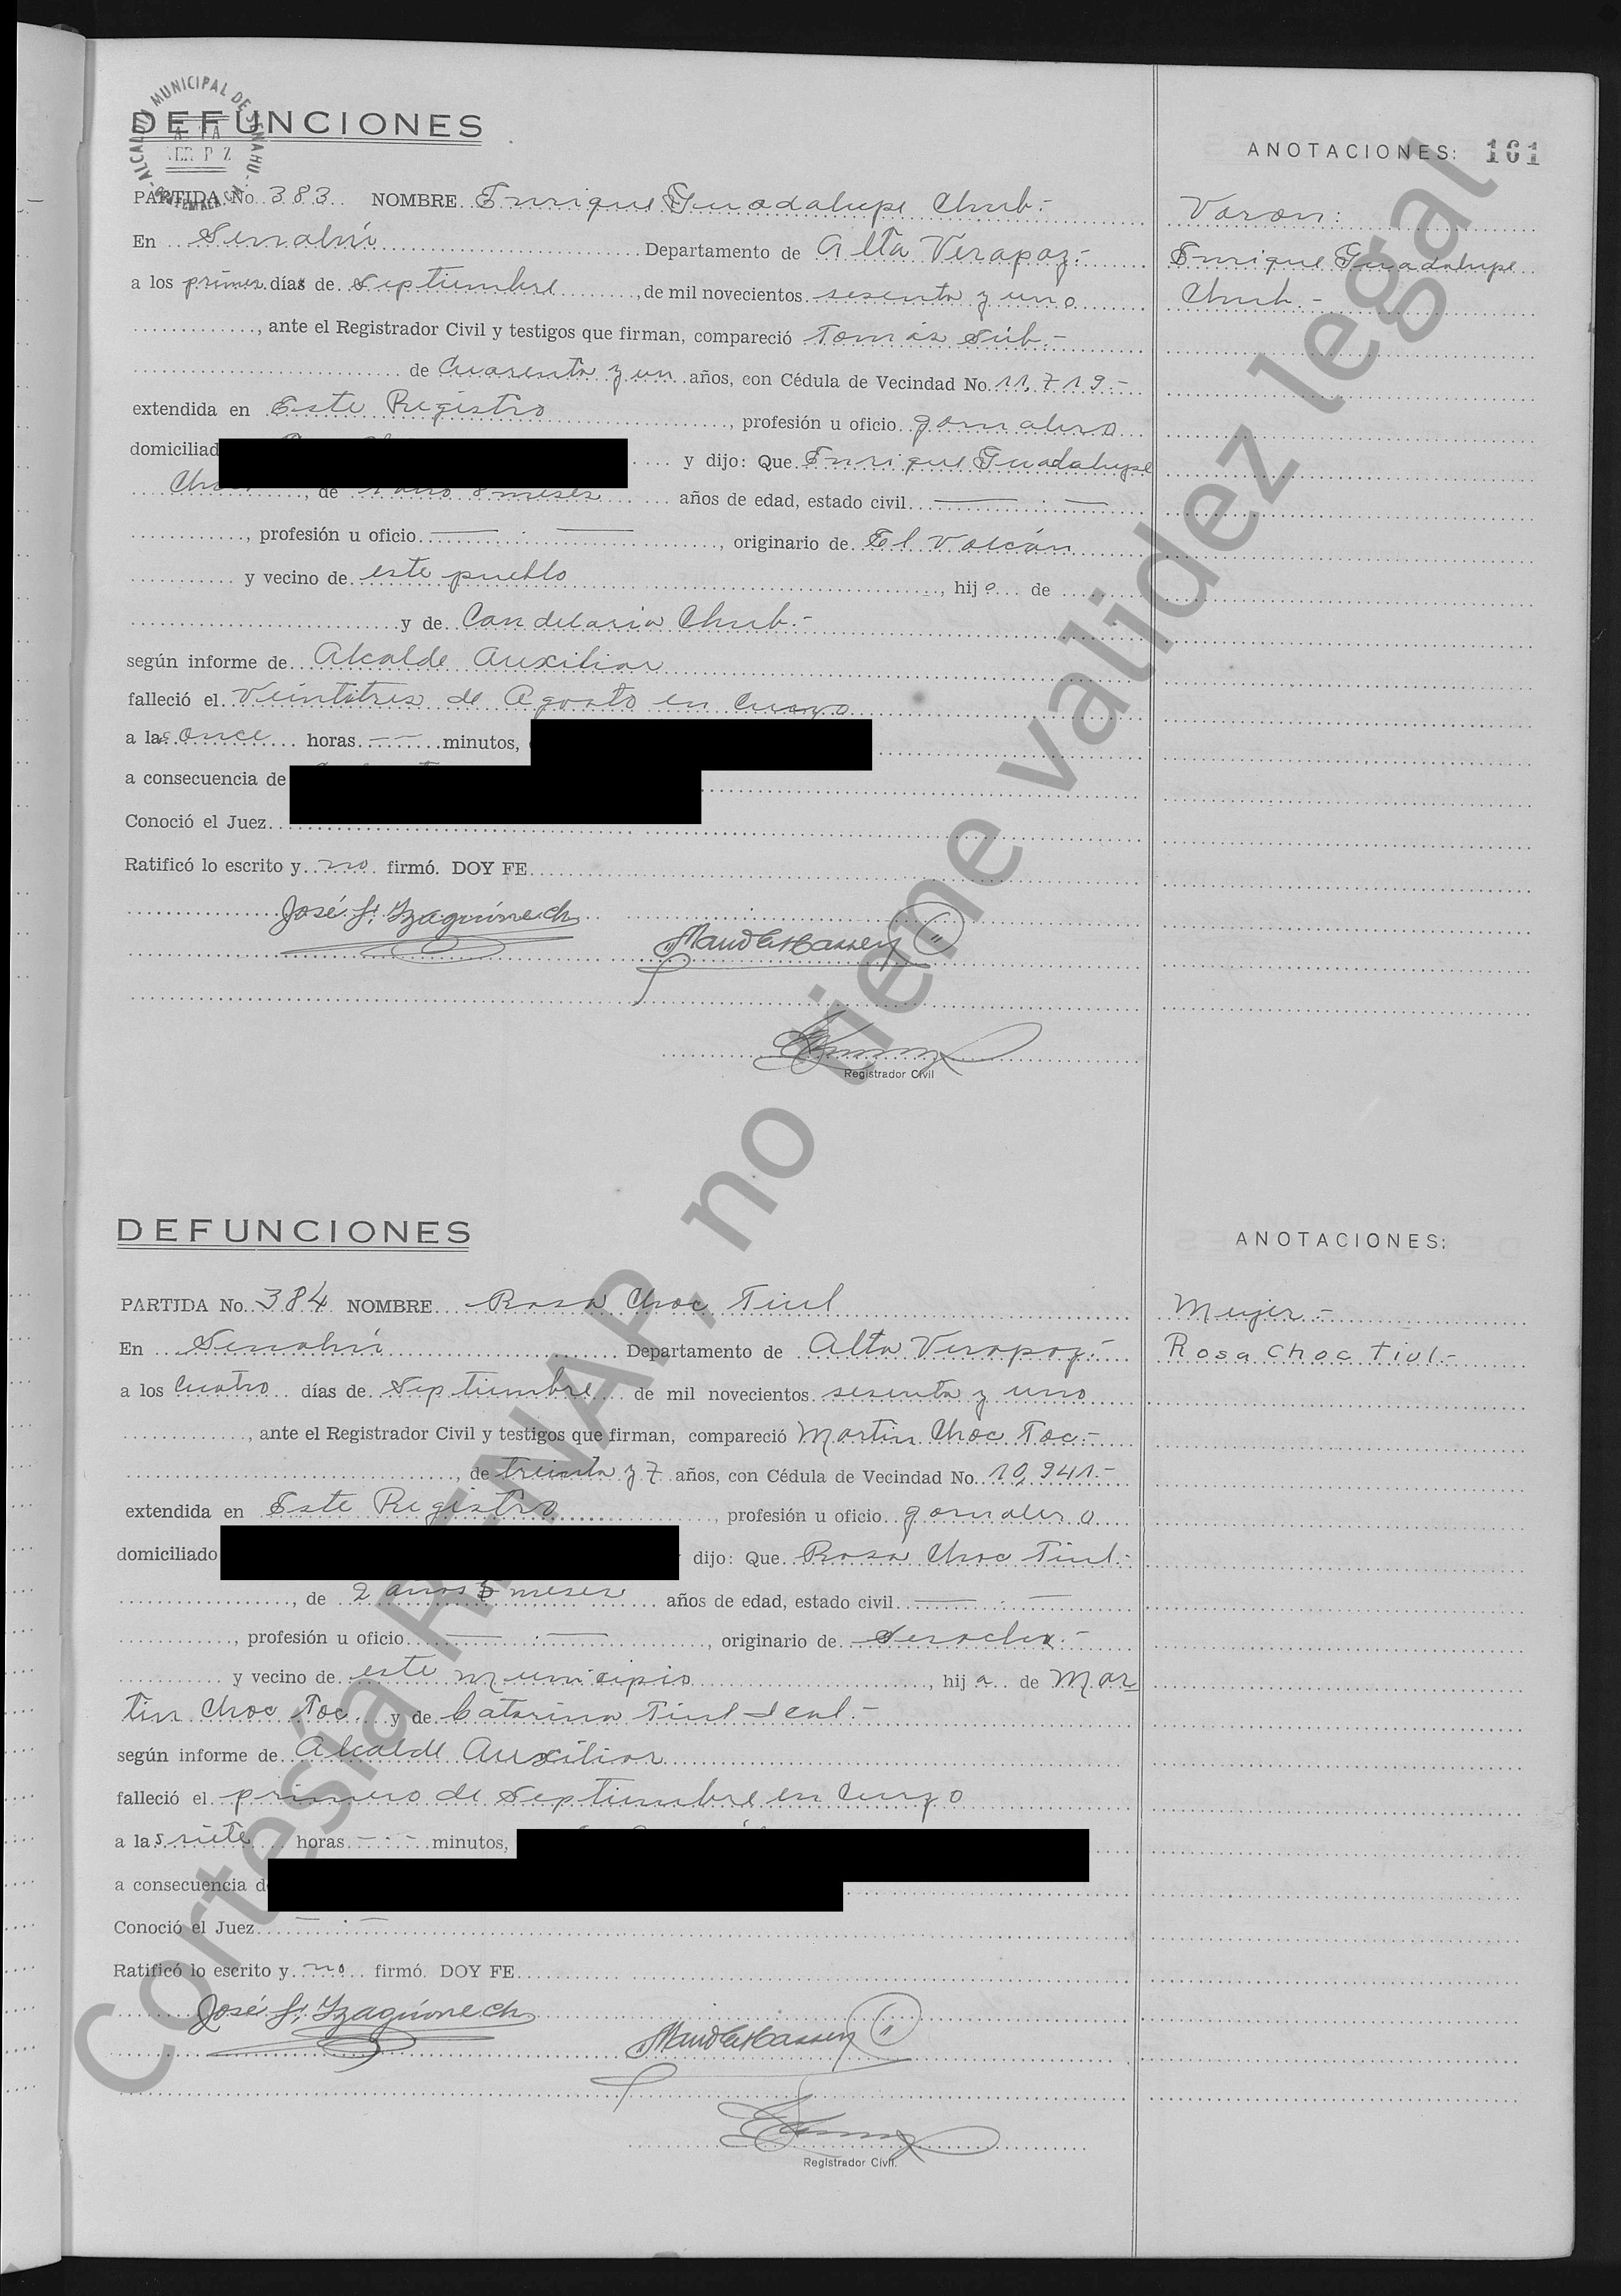 ALCALDIA MUNICIPAL DE SENAHU
GUATEMALA, C.A.
DEFUNCIONES
ANOTACIONES: 161
PARTIDA No. 383 NOMBRE Enrique Guadalupe Chub.-
Varon:
En Senahú Departamento de Alta Verapaz.-
Enrique Guadalupe
a los primer días de Septiembre, de mil novecientos sesenta y uno
Chub.-
, ante el Registrador Civil y testigos que firman, compareció Tomás Súb.-
de Cuarenta y un años, con Cédula de Vecindad No. 11,719.-
extendida en Este Registro, profesión u oficio jornalero
domiciliad y dijo: Que Enrique Guadalupe
, de 1 año 8 meses años de edad, estado civil — . —
, profesión u oficio — . —, originario de El Volcán
y vecino de este pueblo, hijo de
y de Candelaria Chub.-
según informe de Alcalde Auxiliar
falleció el Veintitres de Agosto en Curso
a las once horas - - minutos,
a consecuencia de
Conoció el Juez
Ratificó lo escrito y no firmó. DOY FE
Registrador Civil
DEFUNCIONES
ANOTACIONES:
PARTIDA No. 384 NOMBRE Rosa Choc Tiul
Mujer.-
En Senahú Departamento de Alta Verapaz.-
Rosa Choc Tiul.-
a los Cuatro días de Septiembre de mil novecientos sesenta y uno
, ante el Registrador Civil y testigos que firman, compareció Martin Choc Toc.-
, de treinta y 7 años, con Cédula de Vecindad No. 10,941.-
extendida en Este Registro, profesión u oficio jornalero
domiciliado dijo: Que Rosa Choc Tiul.-
, de 2 años 5 meses años de edad, estado civil — . —
, profesión u oficio — . —, originario de
y vecino de este municipio, hija de Mar
tin Choc Toc y de Catarina Tiul Ical.-
según informe de Alcalde Auxiliar
falleció el primero de Septiembre en Curso
a las siete horas - . - minutos,
a consecuencia d
Conoció el Juez — . —
Ratificó lo escrito y no firmó. DOY FE
Registrador Civil.
Cortesía RENAP, no tiene validez legal